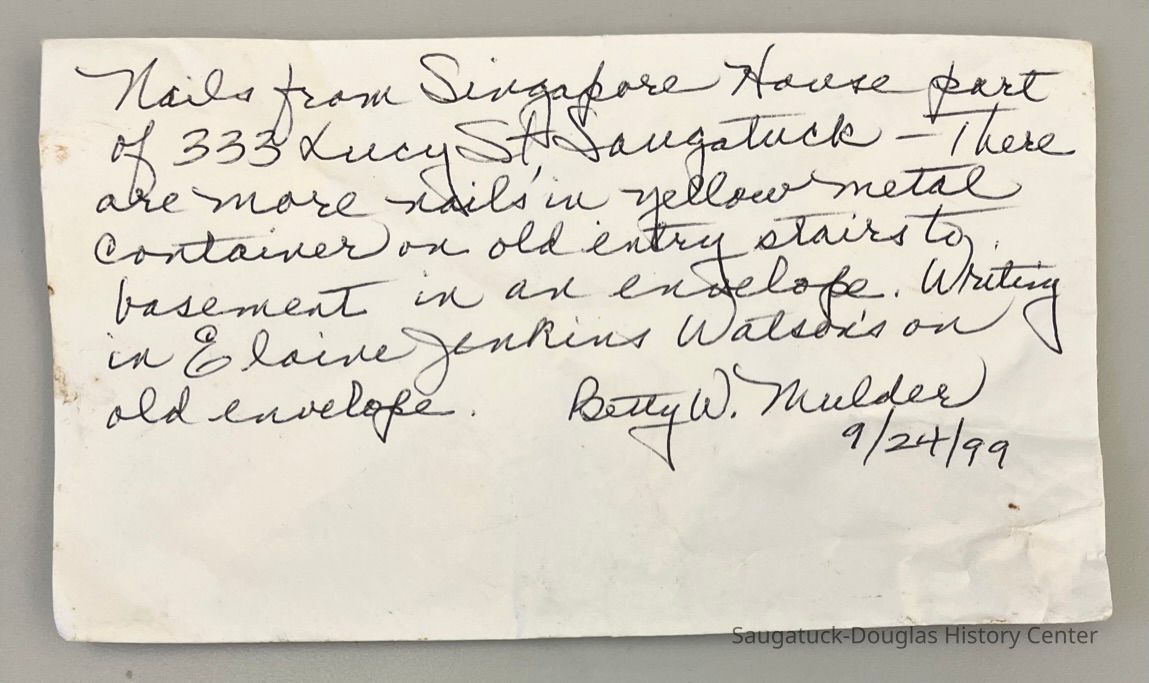 Nails from Singapore House part
of 333 Lucy St, Saugatuck – There
are more nails in yellow metal
container on old entry stairs to
basement in an envelope. Writing
in Elaine Jenkins Watson's on
old envelope. Betty W. Mulder
9/24/99
Saugatuck-Douglas History Center